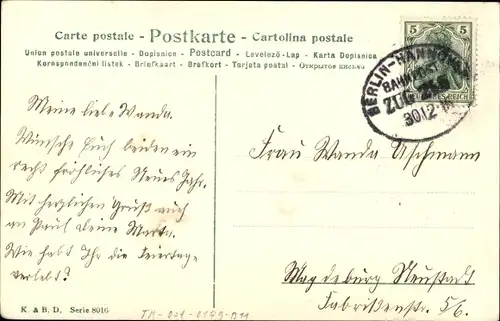 Carte postale - Postkarte - Cartolina postale
Union postale universelle - Dopisnica - Postcard - Levelező-Lap - Karta Dopisnica
Korespondenční lístek - Briefkaart - Brefkort - Tarjeta postal - Открытое письмо
5 5
BERLIN-HANNOVER
BAHNPOST
ZUG
30 12
REICH
Meine liebe Wanda.
Wünsche Euch beiden ein
recht fröhliches Neues Jahr.
Mit herzlichen Gruß auch
an Paul Deine Marta.
Wie habt Ihr die Feiertage
verlebt?
Frau Wanda Aschmann
Magdeburg Neustadt
Fabrikenstr. 56.
K. & B. D. Serie 8016